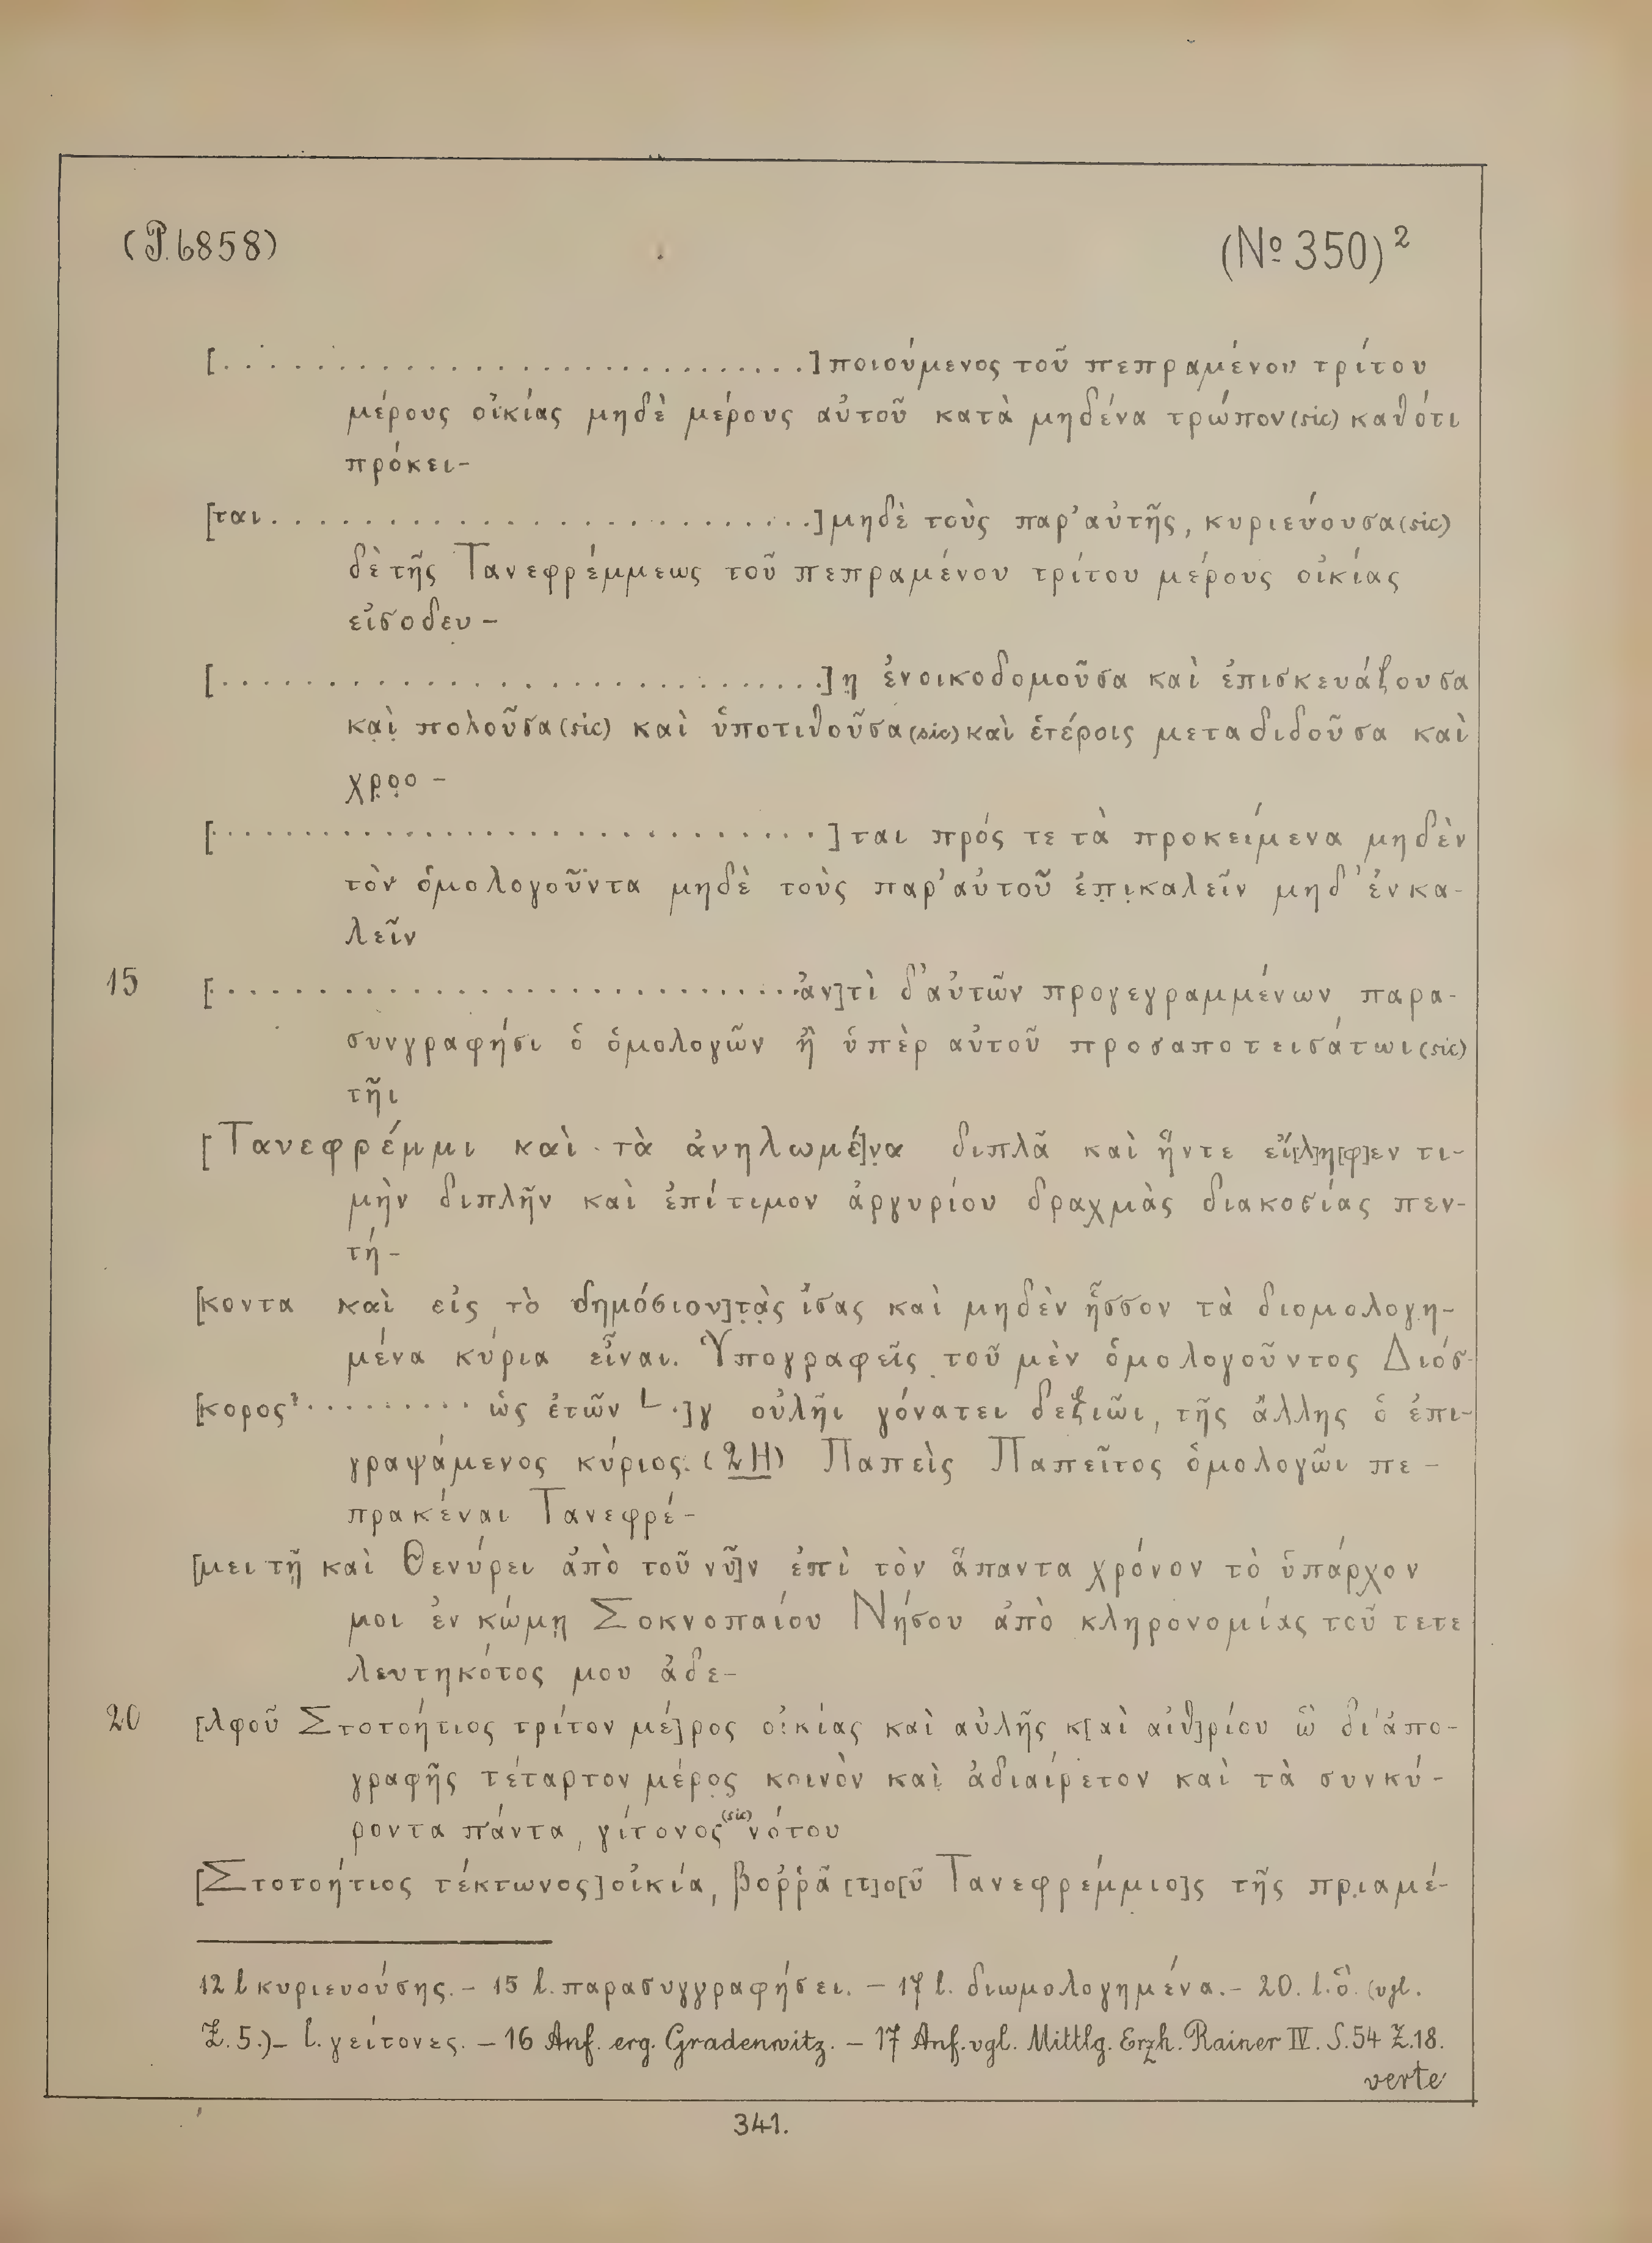 (P. 6858) (№ 350)²
[. . . . . . . . . . . . . . . . . . . . . . . . . . .] ποιούμενος τοῦ πεπραμένου τρίτου
μέρους οἰκίας μηδὲ μέρους αὐτοῦ κατὰ μηδένα τρώπον (sic) καθότι
πρόκει-
[ται . . . . . . . . . . . . . . . . . . . . . . . .] μηδὲ τοὺς παρ' αὐτῆς, κυριεύουσα (sic)
δὲ τῆς Τανεφρέμμεως τοῦ πεπραμένου τρίτου μέρους οἰκίας
εἰσοδευ-
[. . . . . . . . . . . . . . . . . . . . . . . . . . .] η ἐνοικοδομοῦσα καὶ ἐπισκευάζουσα
κα̣ὶ̣ πολοῦσα (sic) καὶ ὑποτιθοῦσα (sic) καὶ ἑτέροις μεταδιδοῦσα καὶ
χρ̣ο̣ο-
[. . . . . . . . . . . . . . . . . . . . . . . . . . .] ται πρός τε τὰ προκείμενα μηδὲν
τὸν ὁμολογοῦντα μηδὲ τοὺς παρ' αὐτοῦ ἐπ̣ι̣καλεῖν μηδ' ἐνκα-
λεῖν
15 [. . . . . . . . . . . . . . . . . . . . . . . . . . ἀν]τὶ δ' αὐτῶν προγεγραμμένων παρα-
συνγραφήσι ὁ ὁμολογῶν ἢ ὑπὲρ αὐτοῦ προσαποτεισάτωι (sic)
τῆι
[Τανεφρέμμι καὶ τὰ ἀνηλωμέ]ν̣α διπλᾶ καὶ ἥντε εἴ[λ]η[φ]εν τι-
μὴν διπλῆν καὶ ἐπίτιμον ἀργυρίου δραχμὰς διακοσίας πεν-
τή-
[κοντα καὶ εἰς τὸ δημόσιον] τ̣ὰ̣ς ἴσας καὶ μηδὲν ἧσσον τὰ διομολογη-
μένα κύρια εἶναι. Ὑπογραφεῖς τοῦ μὲν ὁμολογοῦντος Διόσ-
[κορος? . . . . . . . . . ὡς ἐτῶν L .]γ οὐλῆι γόνατει δεξιῶι, τῆς ἄλλης ὁ ἐπι-
γραψάμενος κύριος. (2 H) Παπεὶς Παπεῖτος ὁμολογῶι πε-
πρακέναι Τανεφρέ-
[μει τῇ καὶ Θενύρει ἀπὸ τοῦ νῦ]ν ἐπὶ τὸν ἅπαντα χρόνον τὸ ὑπάρχον
μοι ἐν κώμῃ Σοκνοπαίου Νήσου ἀπὸ κληρονομίας τοῦ τετε
λευτηκότος μου ἀδε-
20 [λφοῦ Στοτοήτιος τρίτον μέ]ρος οἰκίας καὶ αὐλῆς κ[αὶ αἰθ]ρίου ὣ δι' ἀπο-
γραφῆς τέταρτον μέρο̣ς κοινὸν καὶ̣ ἀδιαίρετον καὶ τὰ συνκύ-
ροντα πάντα, γίτονος (sic) νότου
[Στοτοήτιος τέκτωνος] οἰκία, βοῤῥᾶ [τ]ο[ῦ Τανεφρέμμιο]ς τῆς πρ̣ιαμέ-
12 l κυριευούσης. – 15 l. παρασυγγραφήσει. – 17 l. διωμολογημένα. – 20. l. ὃ. (vgl.
Z. 5.) – l. γείτονες. – 16 Anf. erg. Gradenwitz. – 17 Anf. vgl. Mittlg. Erzh. Rainer IV. S. 54 Z. 18.
verte
341.